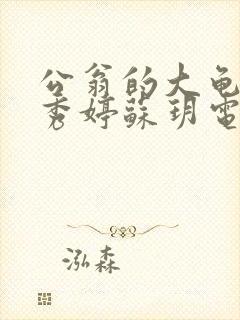 公翁的大龟
秀婷蘇玥電
泓森